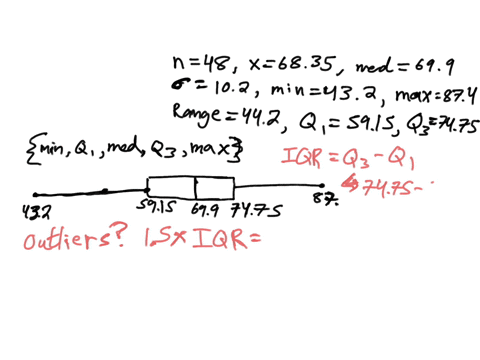 n=48, x=68.35, med=69.9
σ=10.2, min=43.2, max=87.4
Range=44.2, Q₁=59.15, Q₃=74.75
{min, Q₁, med, Q₃, max}
IQR=Q₃-Q₁
↳74.75-
43.2 59.15 69.9 74.75 87.
outliers? 1.5x IQR=